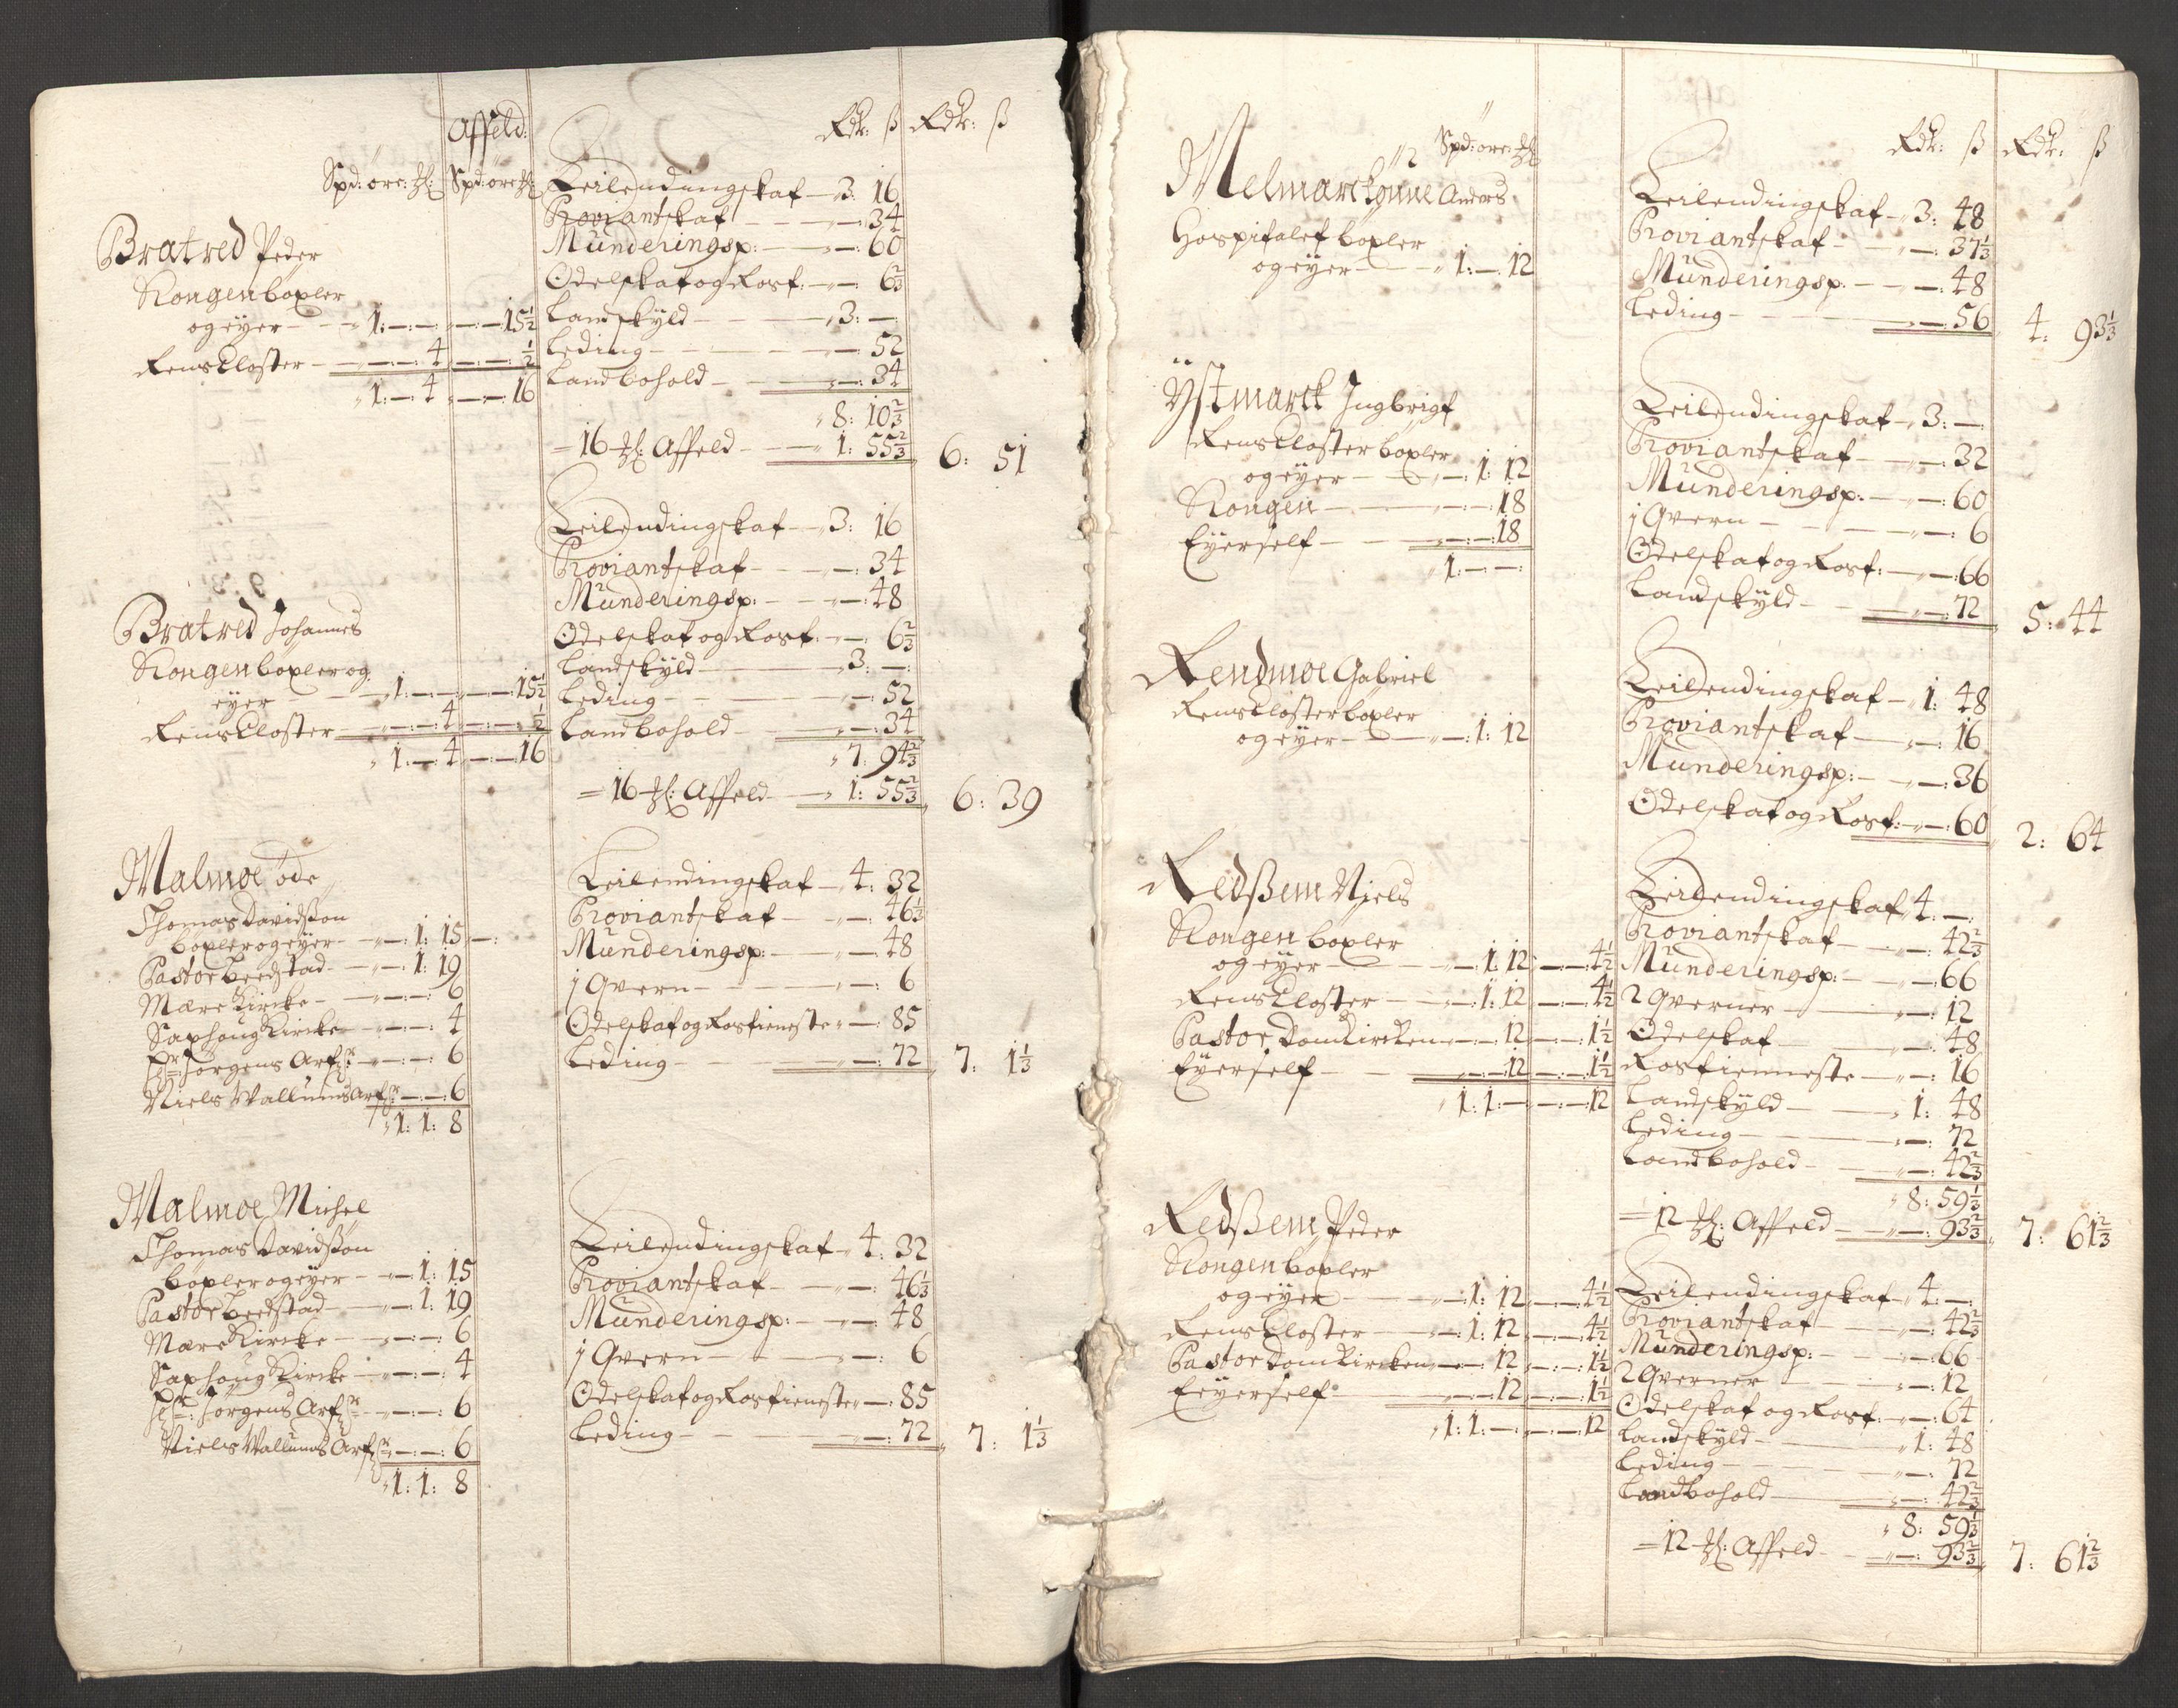 Affeld:
Rdr: ß Rdr: ß
Spd: öre: Spd: öre
Bratred Peder
Kongen böxler
og eyer — 1:—:— —:—:15½
Rens Closter —:—:4 —:—:½
1:—:4 —:—:16
Leilendingskat — 3: 16
Proviantskat —: 34
Munderingsp: —: 60
Odelskat og Rost: —: 6⅔
Landskyld — 3: —
Leding —: 52
Landbohold —: 34
8: 10⅔
16 Affeld — 1: 55⅔ 6: 51
Bratred Johannes
Kongen böxler og
eyer — 1:—:— —:—:15½
Rens Closter —:—:4 —:—:½
1:—:4 —:—:16
Leilendingskat — 3: 16
Proviantskat —: 34
Munderingsp: —: 48
Odelskat og Rost: —: 6⅔
Landskyld — 3: —
Leding —: 52
Landbohold —: 34
7: 94⅔
16 Affeld — 1: 55⅔ 6: 39
Malmoe öde
Thomas Davidßøn
böxler og eyer —: 1: 15
Pastor Beedstad —: 1: 19
Mære Kircke —:—: 6
Saxhoug Kircke —:—: 4
Jørgens Arf: —:—: 6
Niels Wallums Arf: —:—: 6
1: 1: 8
Leilendingskat — 4: 32
Proviantskat —: 46⅓
Munderingsp: —: 48
1 Qvern —: 6
Odelskat og Rostieneste —: 85
Leding —: 72 7: 1⅓
Malmoe Michel
Thomas Davidßøn
böxler og eyer —: 1: 15
Pastor Beedstad —: 1: 19
Mære Kircke —:—: 6
Saxhoug Kircke —:—: 4
Jörgens Arf: —:—: 6
Niels Wallums Arf: —:—: 6
1: 1: 8
Leilendingskat 4: 32
Proviantskat —: 46⅓
Munderingsp: —: 48
1 Qvern —: 6
Odelskat og Rostieneste —: 85
Leding —: 72 7: 1⅓
Spd: öre: Rdr: ß Rdr: ß
Melmarck Anders
Hospitalet böxler
og eyer — 1:—: 12
Leilendingskat — 3: 48
Proviantskat —: 37⅓
Munderingsp: —: 48
Leding —: 56 4: 93⅓
Ystmarck Ingbrigt
Rens Closter böxler
og eyer —: 1: 12
Kongen —:—: 18
Eyer self —:—: 18
1:—:—
Leilendingskat — 3: —
Proviantskat —: 32
Munderingsp: —: 60
1 Qvern —: 6
Odelskat og Rost: —: 66
Landskyld —: 72 5: 44
Rendmoe Gabriel
Rens Closter böxler
og eyer —: 1: 12
Leilendingskat — 1: 48
Proviantskat —: 16
Munderingsp: —: 36
Odelskat og Rost: —: 60 2: 64
Redßem Niels
Kongen böxler
og eyer —: 1: 12 —:—: 4½
Rens Closter —: 1: 12 —:—: 4½
Pastor Domkircken —:—: 12 —:—: 1½
Eyer self —:—: 12 —:—: 1½
1: 1:— —:—: 12
Leilendingskat 4: —
Proviantskat —: 42⅔
Munderingsp: —: 66
2 Qverner —: 12
Odelskat —: 48
Rostienneste —: 16
Landskyld — 1: 48
Leding —: 72
Landbohold —: 42⅔
8: 59⅓
12 Affeld —: 93⅔ 7: 61⅔
Redßem Peder
Kongen böxler
og eyer —: 1: 12 —:—: 4½
Rens Closter —: 1: 12 —:—: 4½
Pastor Domkircken —:—: 12 —:—: 1½
Eeyer self —:—: 12 —:—: 1½
1: 1:— —:—: 12
Leilendingskat 4: —
Proviantskat —: 42⅔
Munderingsp: —: 66
2 Qverner —: 12
Odelskat og Rost: —: 64
Landskyld — 1: 48
Leding —: 72
Landbohold —: 42⅔
8: 59⅓
12 Affeld —: 93⅔ 7: 61⅔